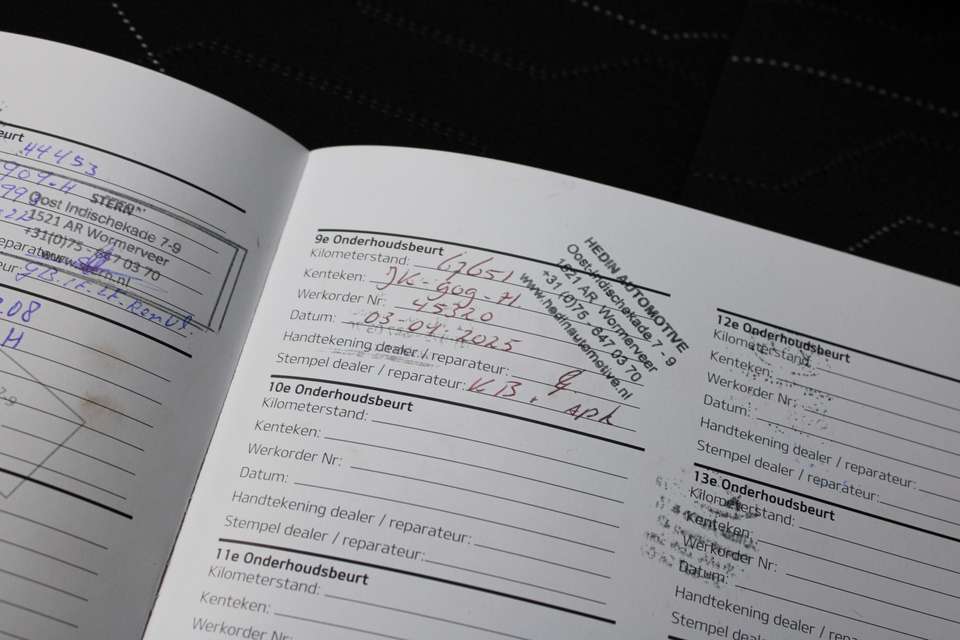 beurt
44453
909-H
STERN
Oost Indischekade 7-9
1521 AR Wormerveer
+31(0)75 - 647 03 70
H
9e Onderhoudsbeurt
Kilometerstand: 67651
Kenteken: JK-909-H
Werkorder Nr: 45320
Datum: 03-04-2025
Handtekening dealer / reparateur:
Stempel dealer / reparateur: KB + APK
HEDIN AUTOMOTIVE
Oost-Indischekade 7 - 9
1521 AR Wormerveer
+31 (0)75 647 03 70
www.hedinautomotive.nl
10e Onderhoudsbeurt
Kilometerstand:
Kenteken:
Werkorder Nr:
Datum:
Handtekening dealer / reparateur:
Stempel dealer / reparateur:
11e Onderhoudsbeurt
Kilometerstand:
Kenteken:
Werkorder Nr:
12e Onderhoudsbeurt
Kilometerstand:
Kenteken:
Werkorder Nr:
Datum:
Handtekening dealer / reparateur:
Stempel dealer / reparateur:
13e Onderhoudsbeurt
Kilometerstand:
Kenteken:
Werkorder Nr:
Datum:
Handtekening dealer / reparateur:
Stempel dealer / reparateur: